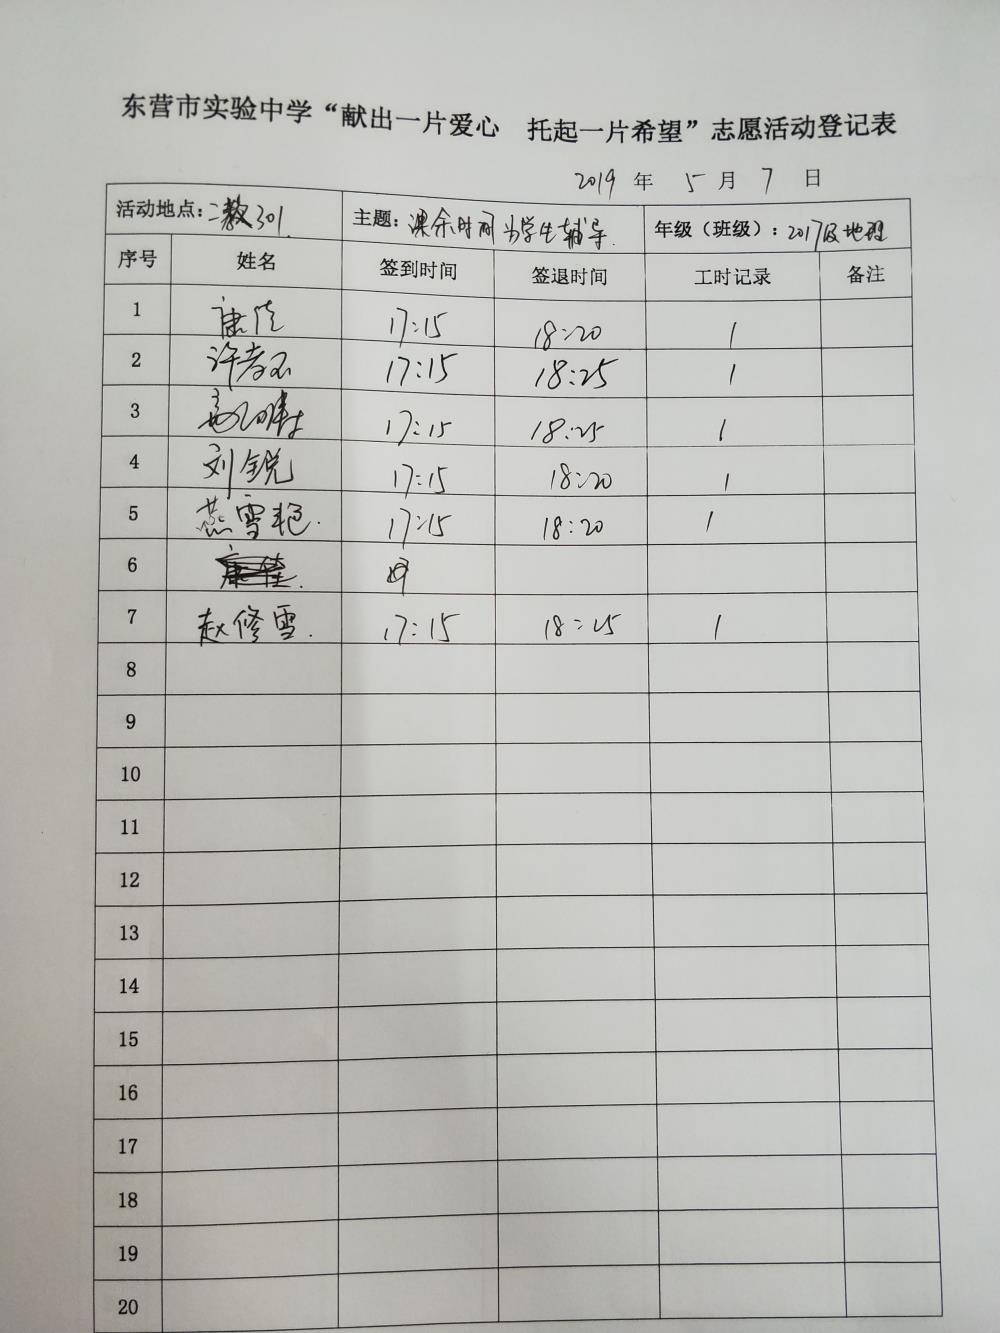 东营市实验中学“献出一片爱心 托起一片希望”志愿活动登记表
2019 年 5 月 7 日
活动地点：二教301. 主题：课余时间为学生辅导. 年级（班级）：2017级地理
序号 姓名 签到时间 签退时间 工时记录 备注
1 康佳 17:15 18:20 1
2 许孝 17:15 18:25 1
3 17:15 18:25 1
4 刘锐 17:15 18:20 1
5 燕雪艳. 17:15 18:20 1
6
7 赵修雪. 17:15 18:25 1
8
9
10
11
12
13
14
15
16
17
18
19
20